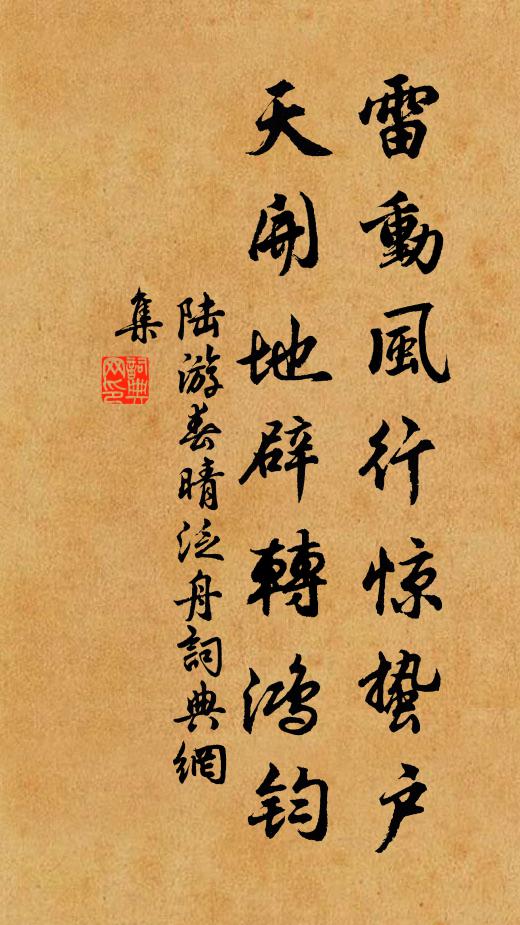 雷動風行惊蛰户
天開地辟轉鴻钧
陆游春晴泛舟詞典網
集
詞典网印